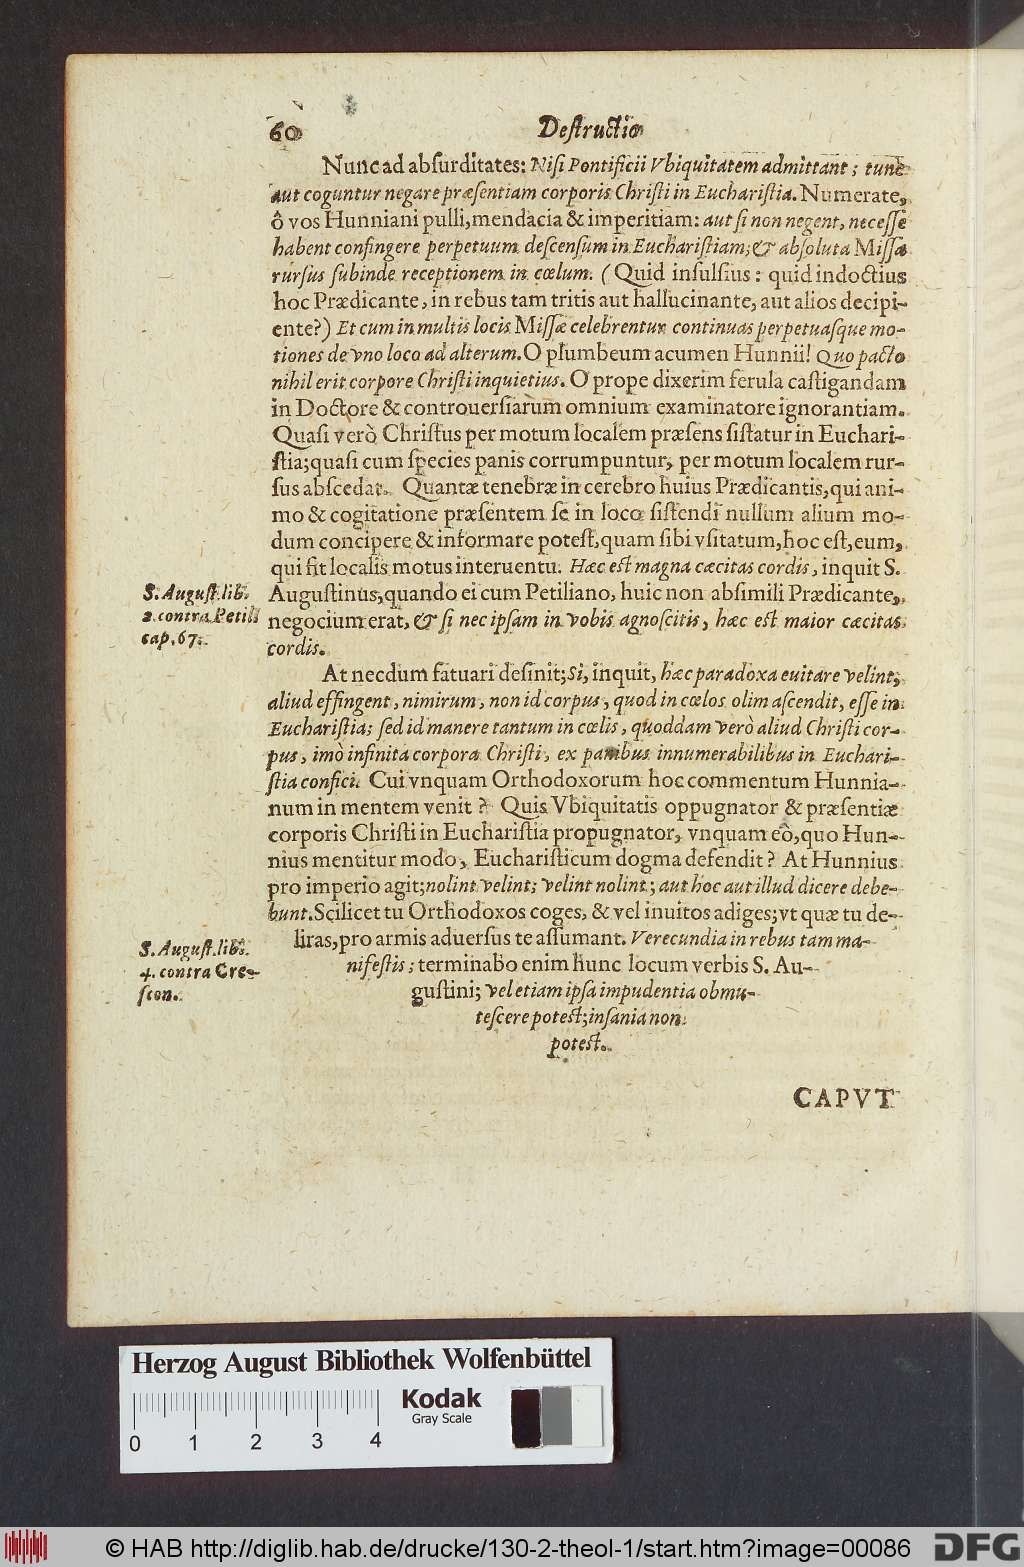 60 Destructio
Nunc ad absurditates: Nisi Pontificii Vbiquitatem admittant; tunc
aut coguntur negare præsentiam corporis Christi in Eucharistia. Numerate,
ô vos Hunniani pulli, mendacia & imperitiam: aut si non negent, necesse
habent confingere perpetuum descensum in Eucharistiam; & absoluta Missa
rursus subinde receptionem in cœlum. (Quid insulsius: quid indoctius
hoc Prædicante, in rebus tam tritis aut hallucinante, aut alios decipi-
ente?) Et cum in multis locis Missæ celebrentur continuas perpetuasque mo-
tiones de vno loco ad alterum. O plumbeum acumen Hunnii! Quo pacto
nihil erit corpore Christi inquietius. O prope dixerim ferula castigandam
in Doctore & controuersiarum omnium examinatore ignorantiam.
Quasi verò Christus per motum localem præsens sistatur in Euchari-
stia; quasi cum species panis corrumpuntur, per motum localem rur-
sus abscedat. Quantæ tenebræ in cerebro huius Prædicantis, qui ani-
mo & cogitatione præsentem se in loco sistendi nullum alium mo-
dum concipere & informare potest, quam sibi vsitatum, hoc est, eum,
qui fit localis motus interuentu. Hæc est magna cæcitas cordis, inquit S.
S. August. lib.
2. contra Petili
cap. 67.
Augustinus, quando ei cum Petiliano, huic non absimili Prædicante,
negocium erat, & si nec ipsam in vobis agnoscitis, hæc est maior cæcitas
cordis.
At necdum fatuari desinit; Si, inquit, hæc paradoxa euitare velint;
aliud effingent, nimirum, non id corpus, quod in cœlos olim ascendit, esse in
Eucharistia; sed id manere tantum in cœlis, quoddam verò aliud Christi cor-
pus, imò infinita corpora Christi, ex panibus innumerabilibus in Euchari-
stia confici. Cui vnquam Orthodoxorum hoc commentum Hunnia-
num in mentem venit? Quis Vbiquitatis oppugnator & præsentiæ
corporis Christi in Eucharistia propugnator, vnquam eò, quo Hun-
nius mentitur modo, Eucharisticum dogma defendit? At Hunnius
pro imperio agit; nolint velint; velint nolint; aut hoc aut illud dicere debe-
bunt. Scilicet tu Orthodoxos coges, & vel inuitos adiges; vt quæ tu de-
liras, pro armis aduersus te assumant. Verecundia in rebus tam ma-
S. August. lib.
4. contra Cre-
scon.
nifestis; terminabo enim hunc locum verbis S. Au-
gustini; vel etiam ipsa impudentia obmu-
tescere potest; insania non
potest.
CAPVT
Herzog August Bibliothek Wolfenbüttel
Kodak
Gray Scale
0 1 2 3 4
© HAB http://diglib.hab.de/drucke/130-2-theol-1/start.htm?image=00086
DFG